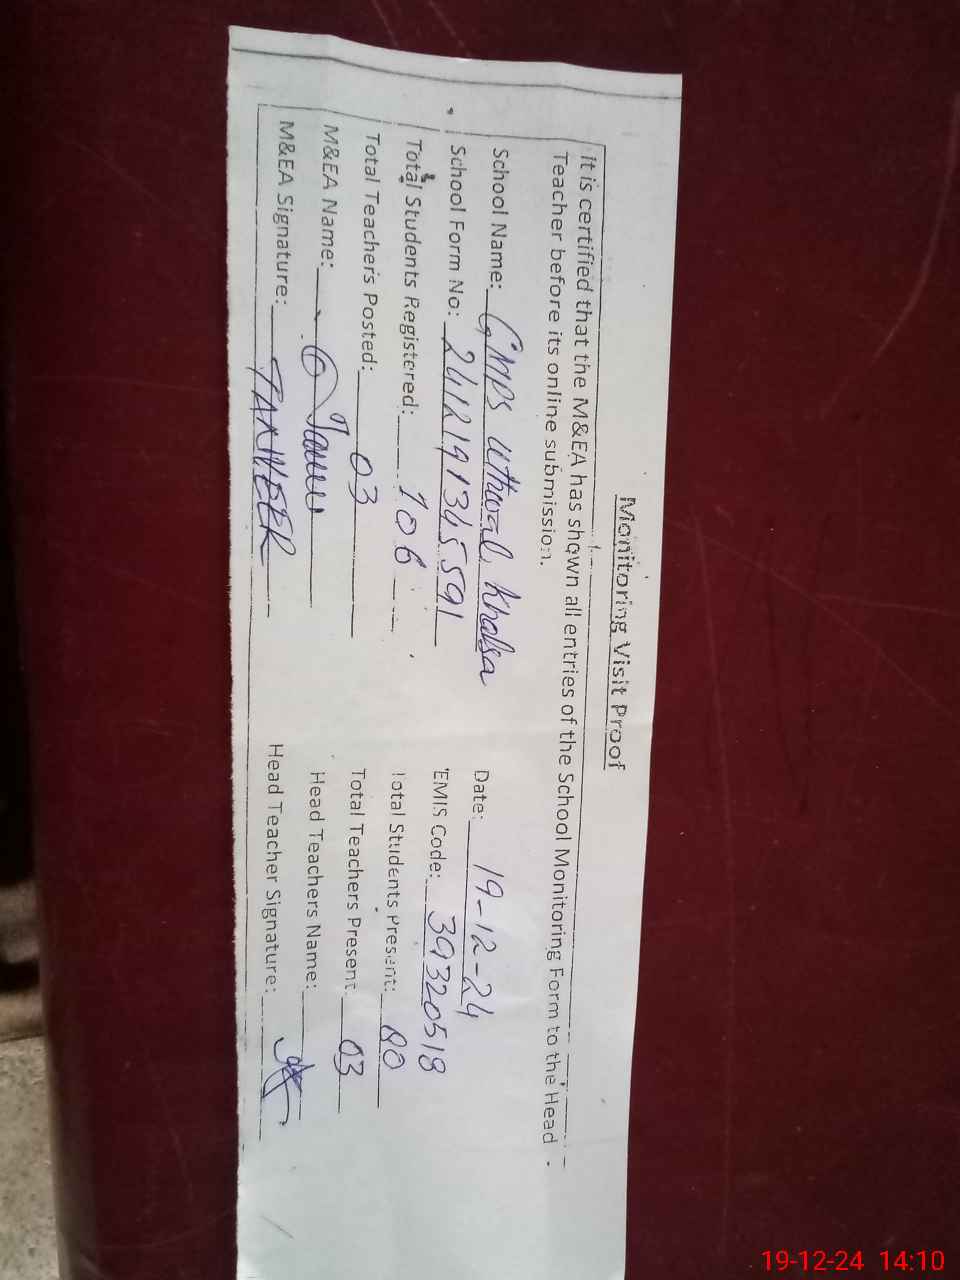 Monitoring Visit Proof
It is certified that the M&EA has shown all entries of the School Monitoring Form to the Head
Teacher before its online submission.
School Name: GMPS Uthwal Khalsa Date: 19-12-24
School Form No: 2412191345591 EMIS Code: 39320518
Total Students Registered: 106 Total Students Present: 80
Total Teachers Posted: 03 Total Teachers Present: 03
M&EA Name: Head Teachers Name:
M&EA Signature: TANVEER Head Teacher Signature:
19-12-24 14:10